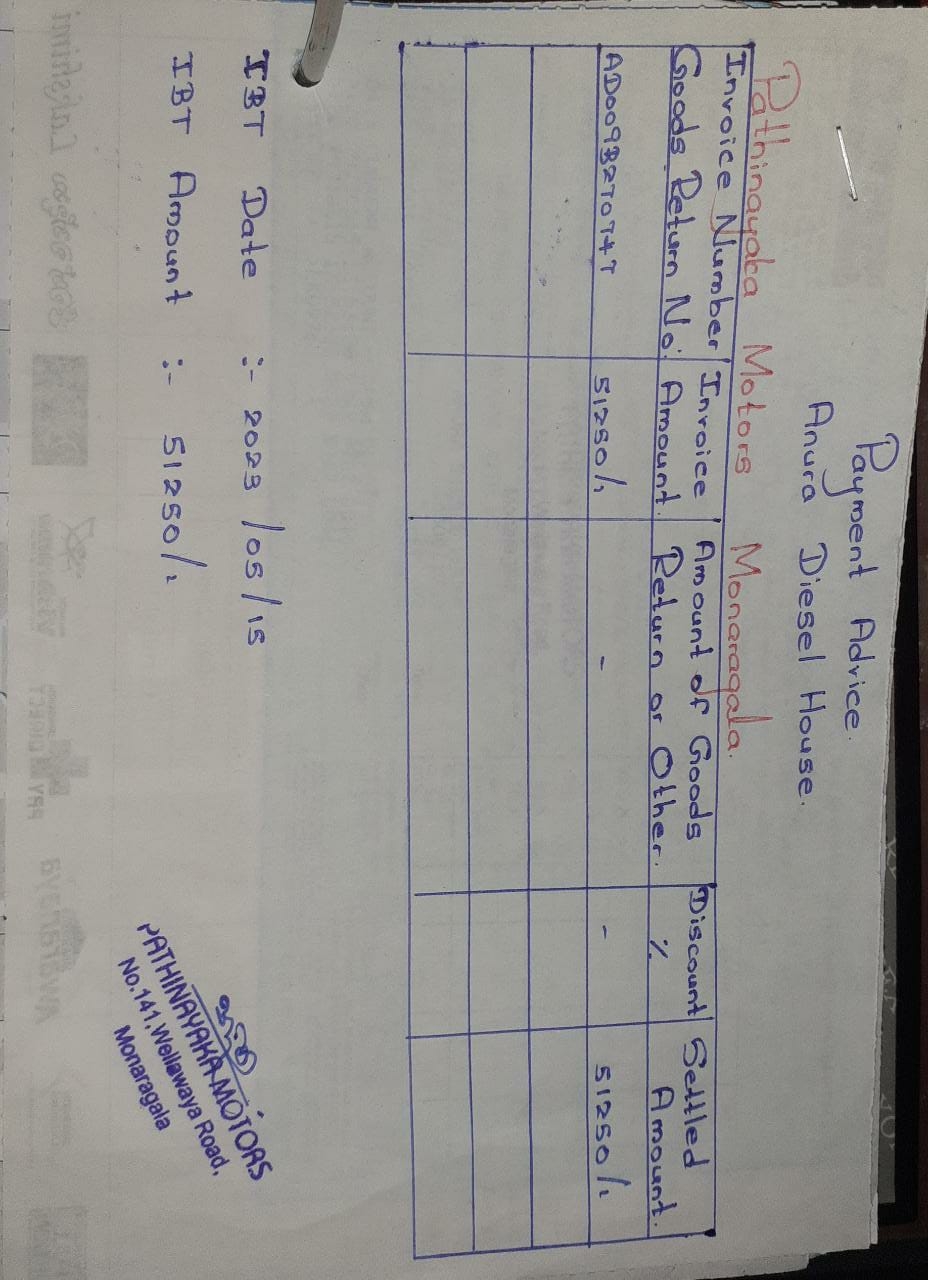 Payment Advice.
Anura Diesel House.
Pathinayaka Motors Monaragala.
Invoice Number Invoice Amount of Goods Discount Settled
Goods Return No. Amount. Return or Other. % Amount.
AD009B270747 51250/. - - 51250/.
IBT Date :- 2023/05/15
IBT Amount :- 51250/.
PATHINAYAKA MOTORS
No.141, Wellawaya Road,
Monaragala